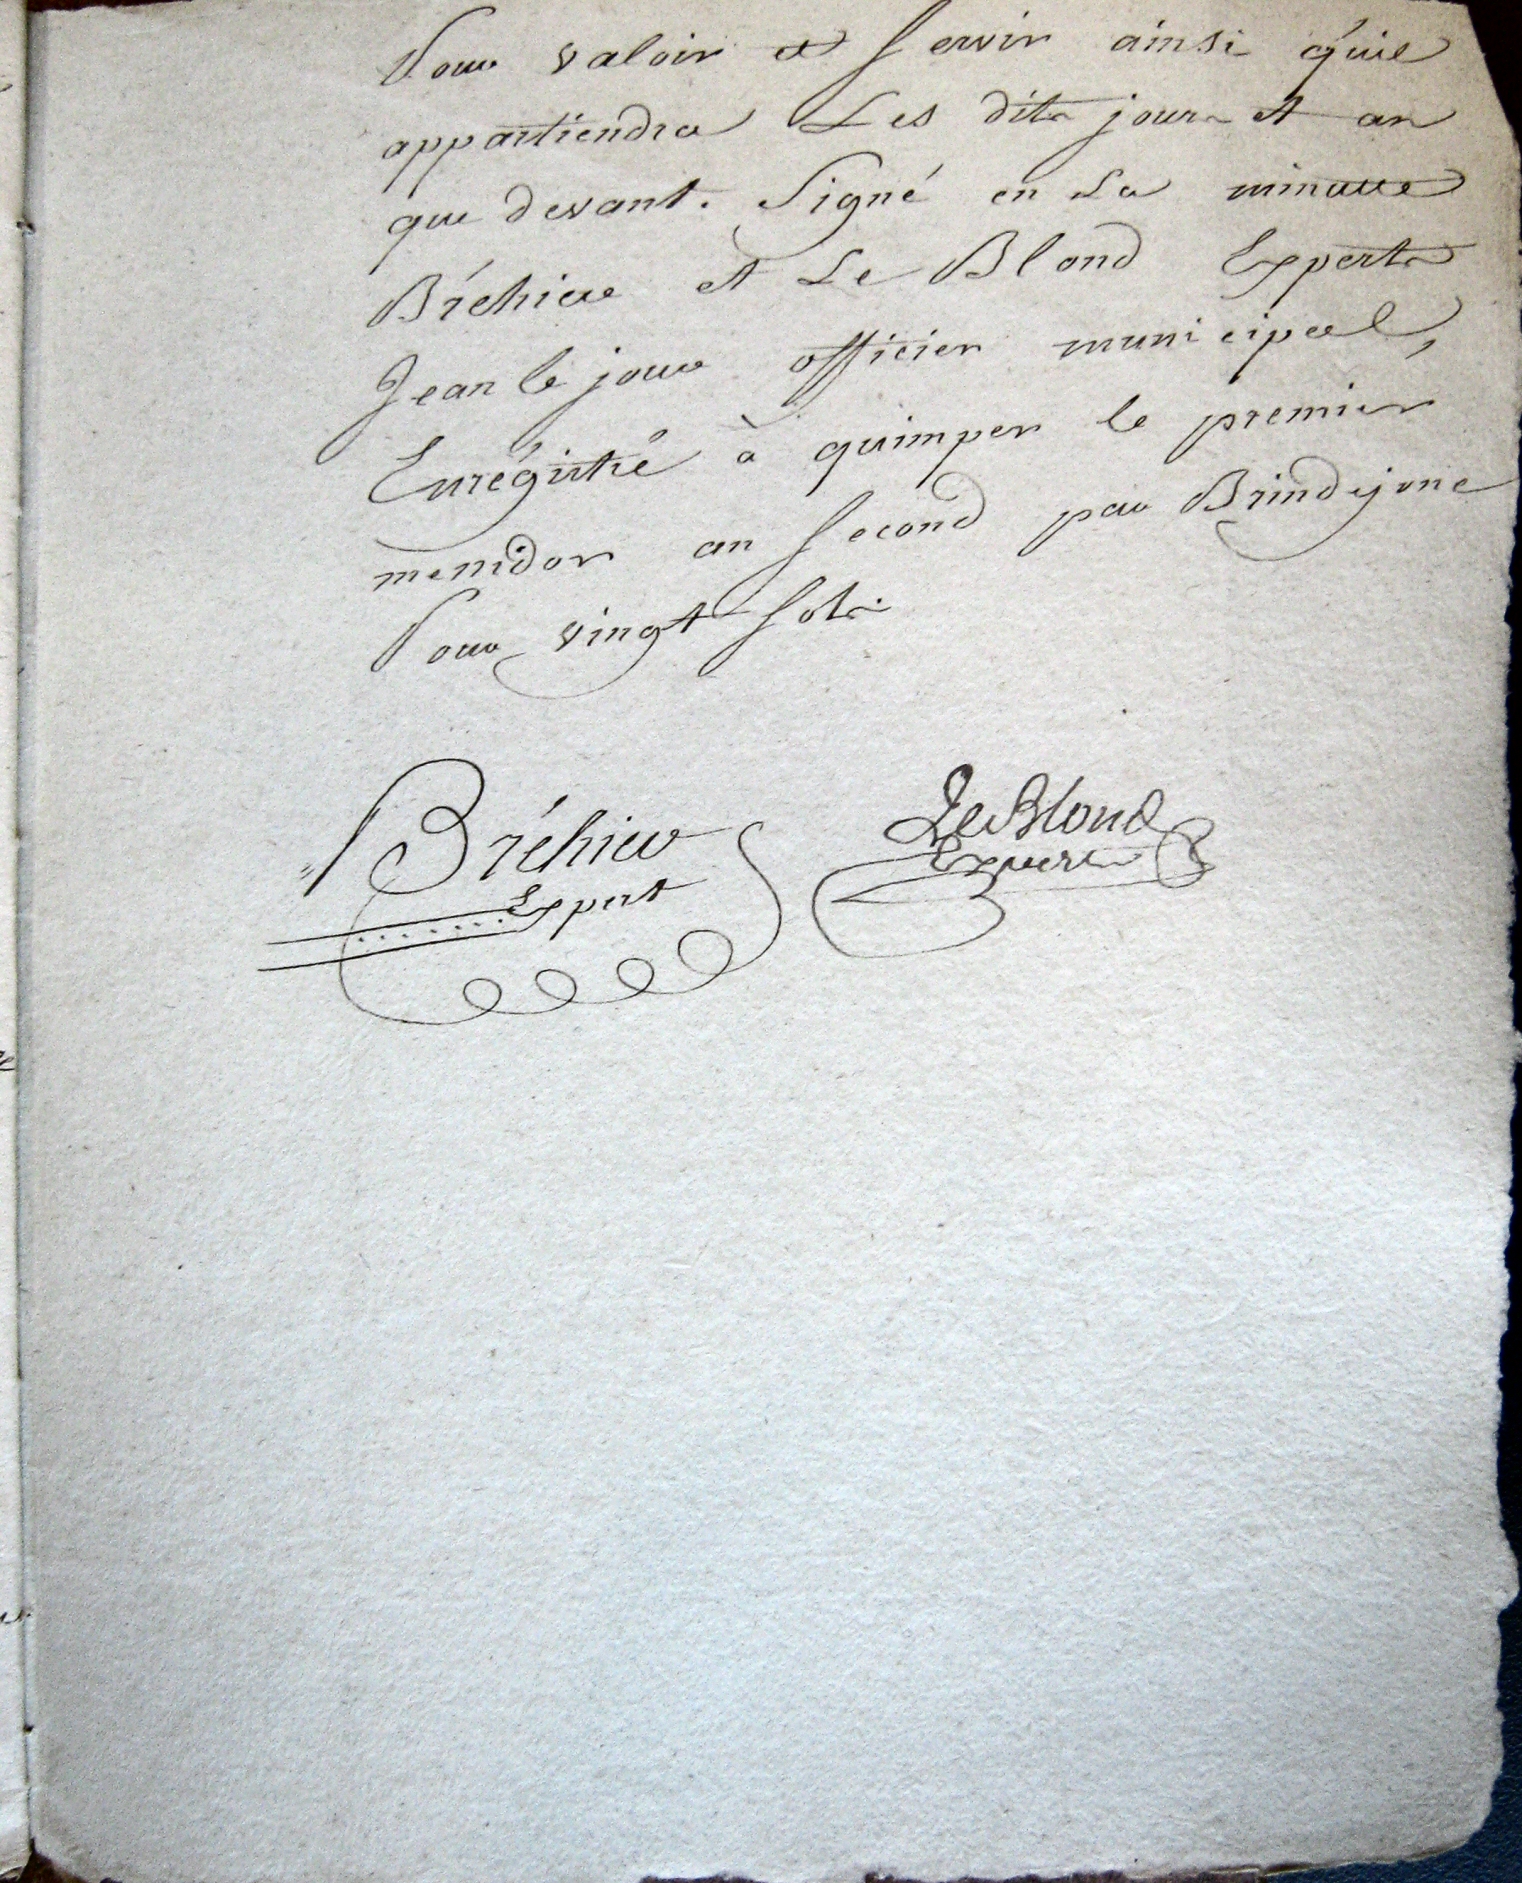 Pour valoir et servir ainsi qu'il
appartiendra Les dits jours et an
que devant. Signé en La minutte
Bréhier et Le Blond Experts
Jean le jour officier municipal,
Enrégistré à quimper le premier
mesidor an second par Brindejonc
Pour vingt sols.
Bréhier
Expert
Le Blond
Expert